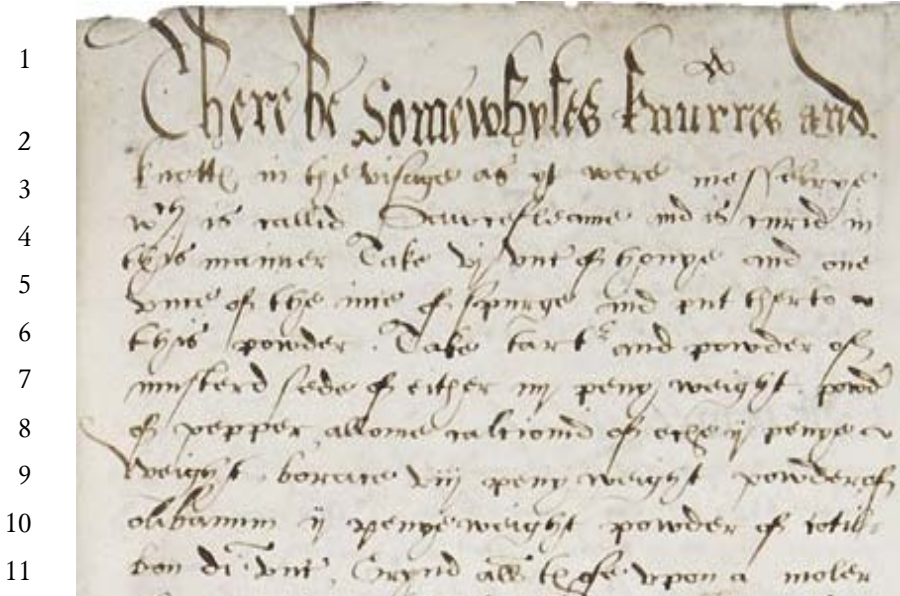 1 There be Somewhyles knurres and
2 knott in the visage as yt were messelrye
3 wch is callid Sawcefleame and is curid in
4 this manner Take vj vnc of honye and one
5 vnce of the iuce of spurge and put therto
6 this powder. Take tart and powder of
7 musterd sede of either iiij peny weight powd
8 of pepper allome calcionid of eche ij penye
9 weight borace viij peny weight powder of
10 olibanum ij penye weight powder of
11 di vnc. Grynd all these vpon a moler